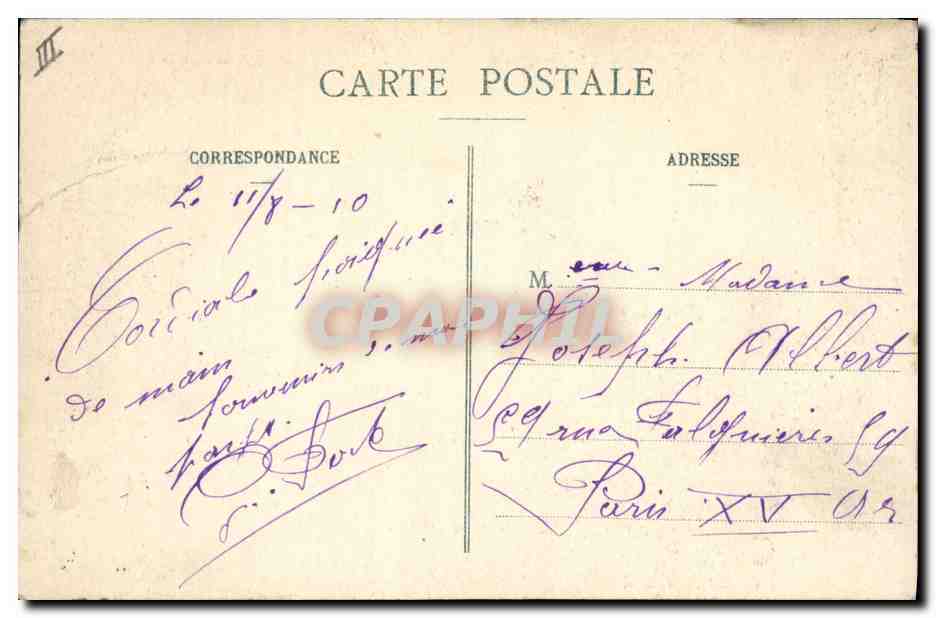 III
CARTE POSTALE
CORRESPONDANCE
ADRESSE
Le 11/8 - 10
Cordiale poignée
de main
souvenirs
M. Madame
Joseph Albert
59 rue Falguieres 59
Paris XV Ar
CPAPHIL